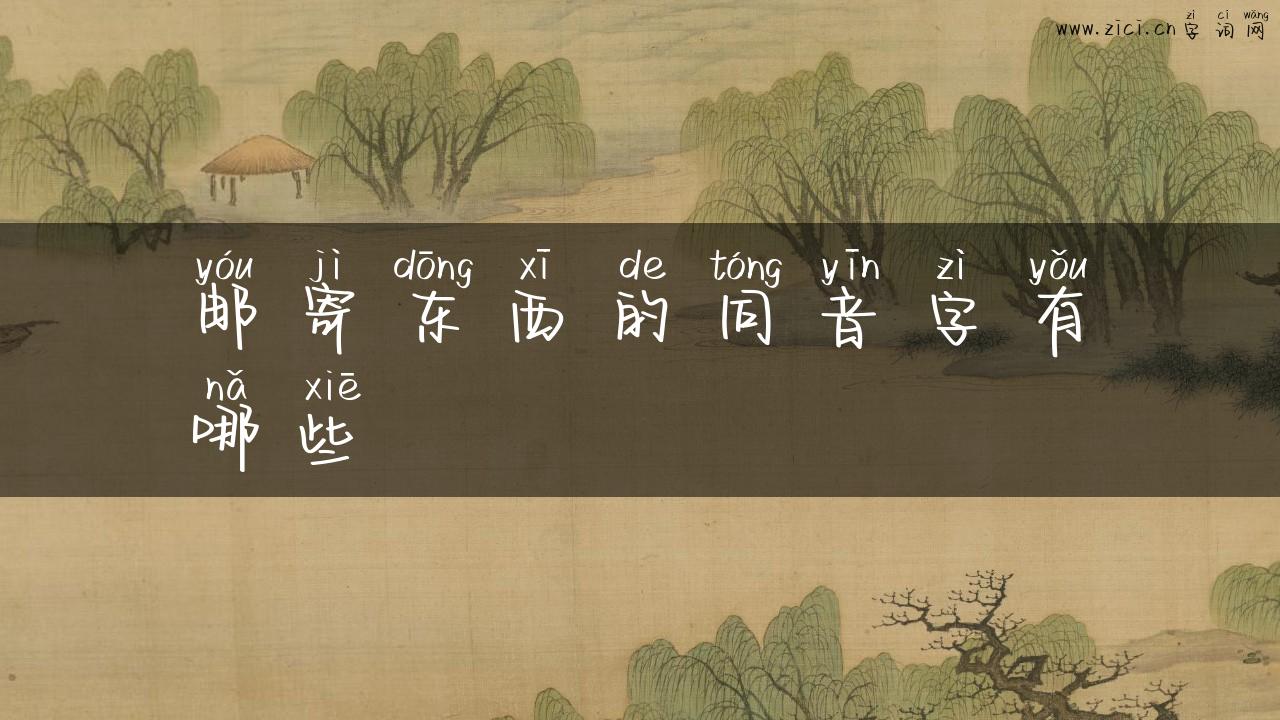 zì cí wǎng
www.zici.cn 字词网
yóu jì dōng xī de tóng yīn zì yǒu
邮寄东西的同音字有
nǎ xiē
哪些